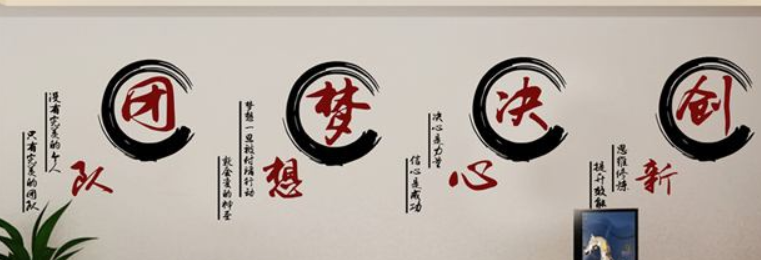 团队
没有完美的个人
只有完美的团队
梦想
梦想一旦被付诸行动
就会变的神圣
决心
决心是力量
信心是成功
创新
思维修炼
提升效能